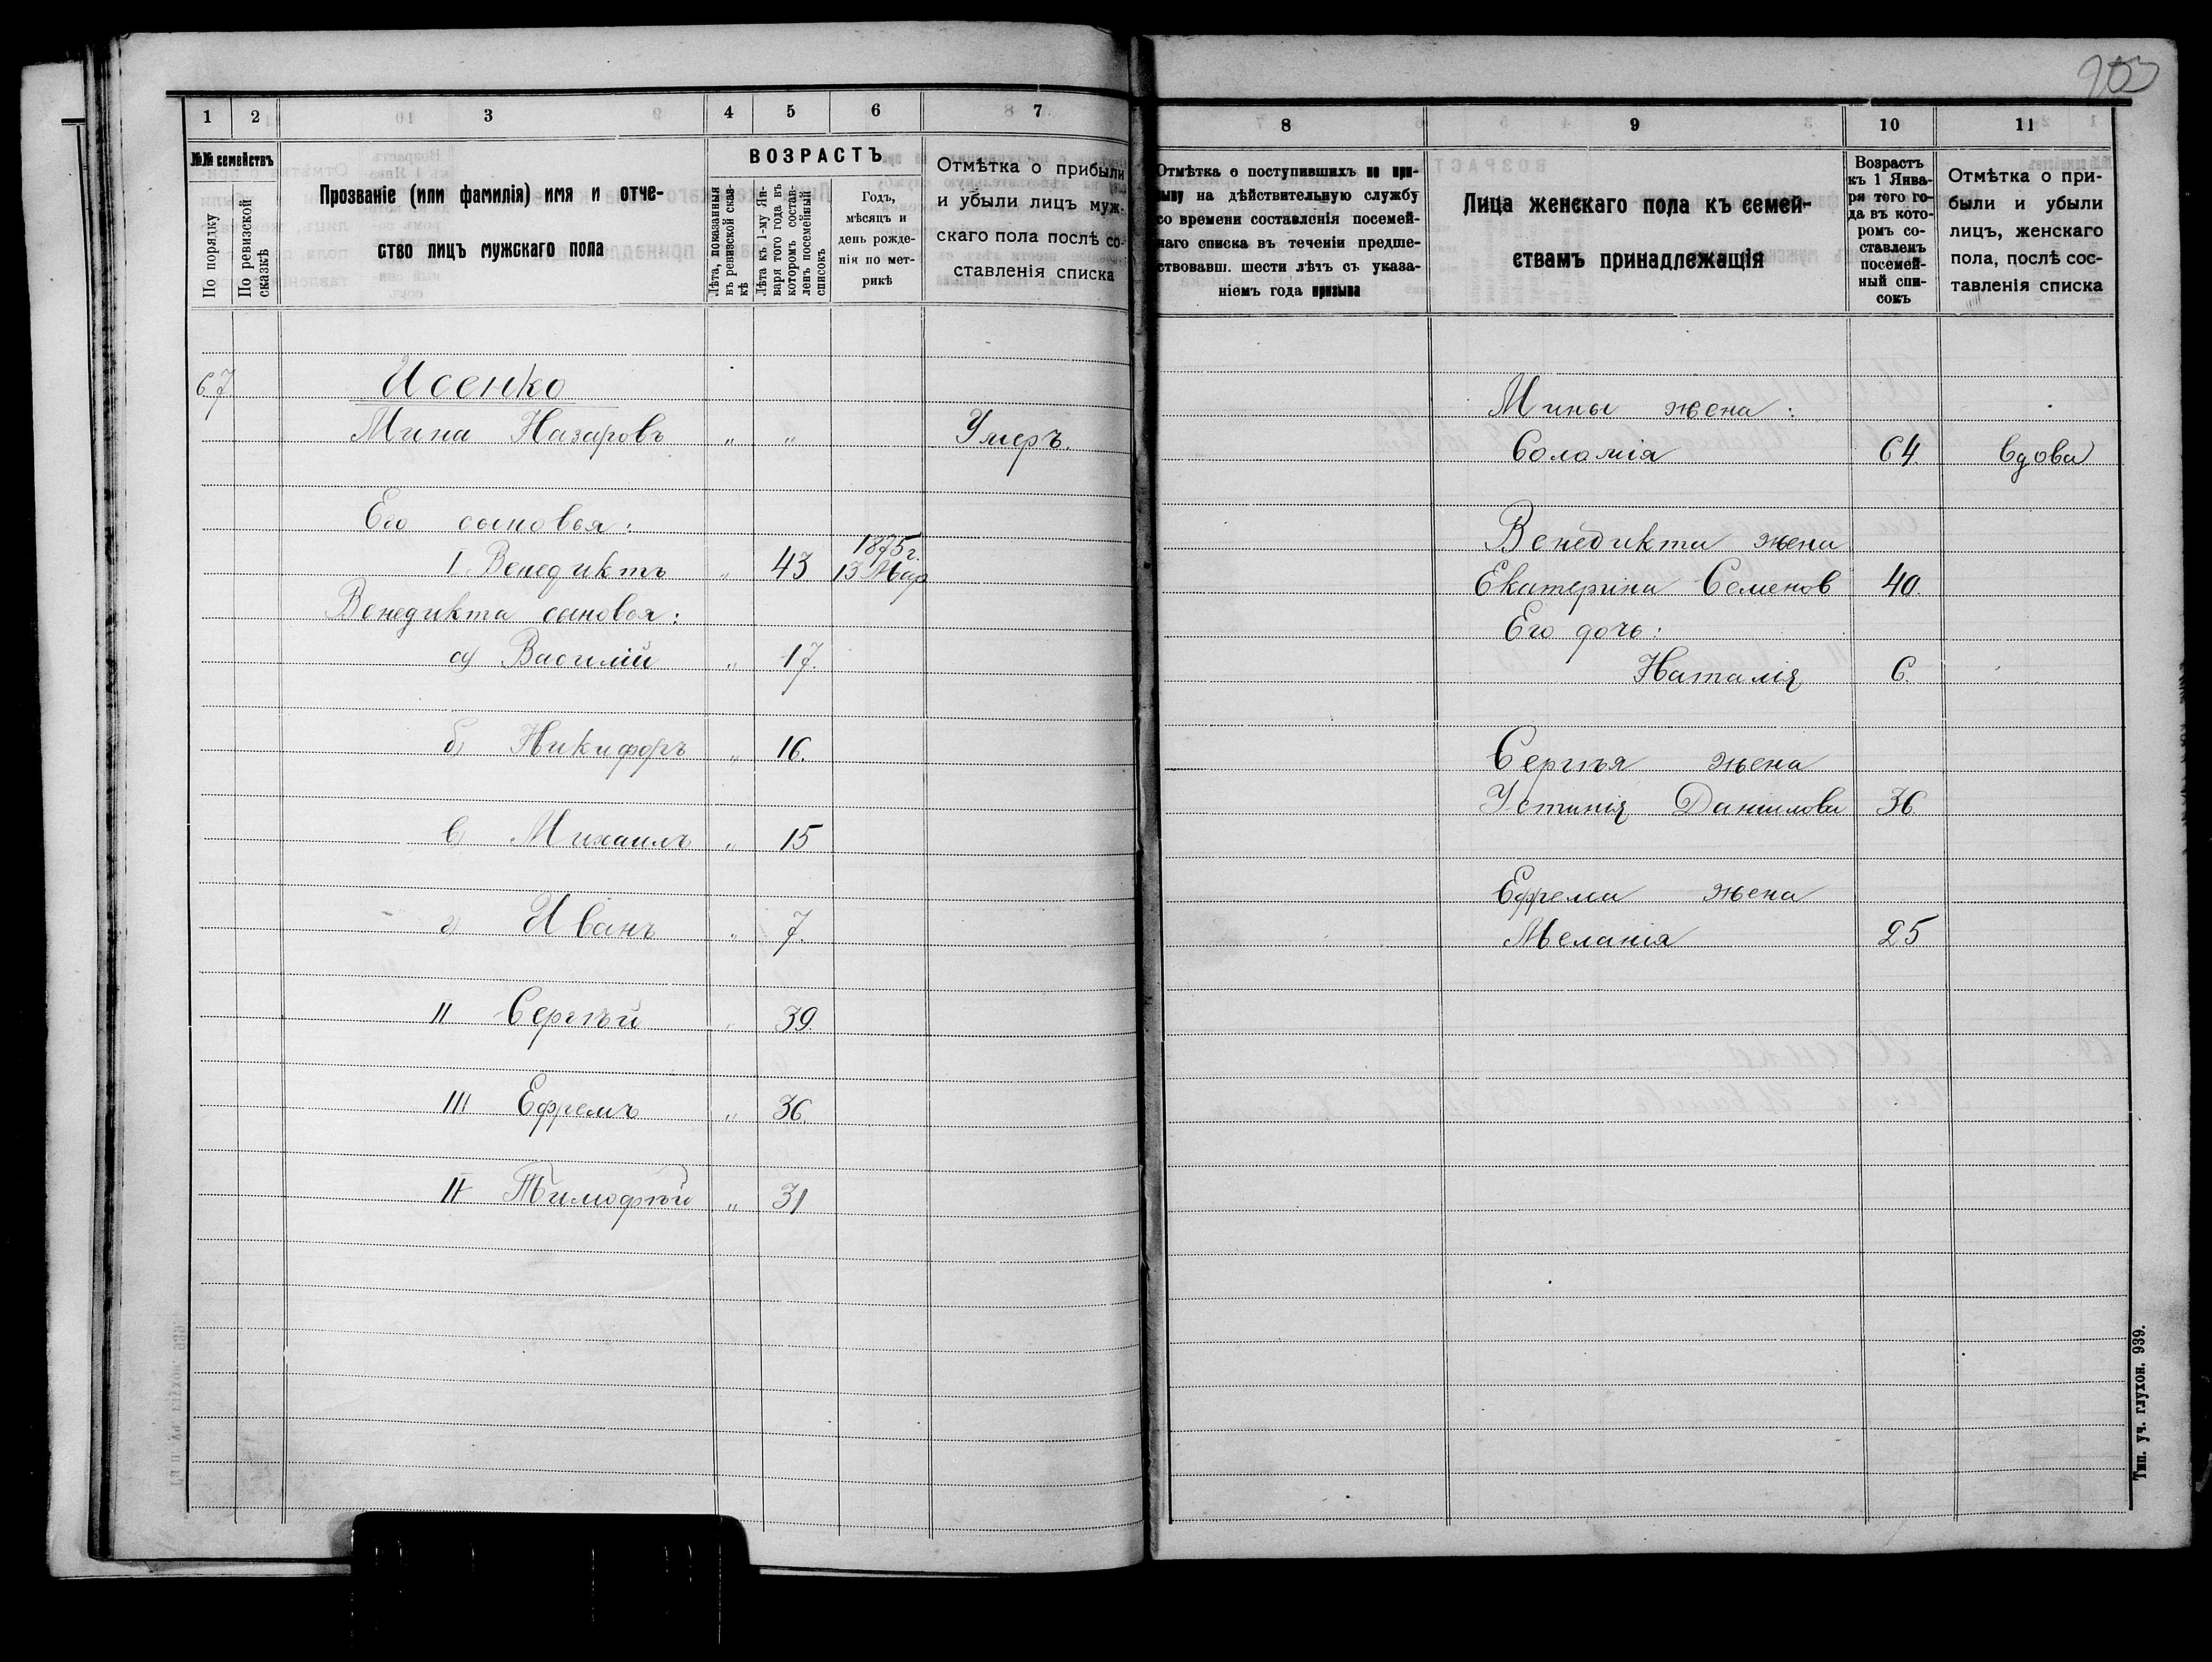 1 2 3 4 5 6 7
№№ семействъ
По порядку
По ревизской сказкѣ
Прозваніе (или фамилія) имя и отче-
ство лицъ мужскаго пола
ВОЗРАСТЪ
Лѣта, показанныя
въ ревизской сказ-
кѣ
Лѣта къ 1-му Ян-
варя того года въ
которомъ состав-
ленъ посемейный
списокъ
Годъ,
мѣсяцъ и
день рожде-
нія по мет-
рикѣ
Отмѣтка о прибыли
и убыли лицъ муж-
скаго пола послѣ со-
ставленія списка
67 Исенко
Мина Назаровъ „ „ Умеръ.
Его сыновья:
1875 г.
I. Венедиктъ „ 43 13 Мар
Венедикта сыновья:
а) Василій „ 17.
б) Никифоръ „ 16.
в) Михаилъ „ 15
г) Иванъ „ 7.
II Сергѣй „ 39
III Ефремъ „ 36.
Тимофѣй „ 31
8 9 10 11
Отмѣтка о поступившихъ по при-
зыву на дѣйствительную службу
со времени составленія посемей-
наго списка въ теченіи предше-
ствовавш. шести лѣтъ съ указа-
ніемъ года призыва
Лица женскаго пола къ семей-
ствамъ принадлежащія
Возрастъ
къ 1 Янва-
ря того го-
да въ кото-
ромъ со-
ставленъ
посемей-
ный спи-
сокъ
Отмѣтка о при-
были и убыли
лицъ, женскаго
пола, послѣ сос-
тавленія списка
Мины жена:
Соломія 64 Вдова
Венедикта жена
Екатерина Семенов 40.
Его дочь:
Наталія 6.
Сергѣя жена
Устинія Данилова 36
Ефрема жена
Меланія 25
Тип. уч. глухон. 939.